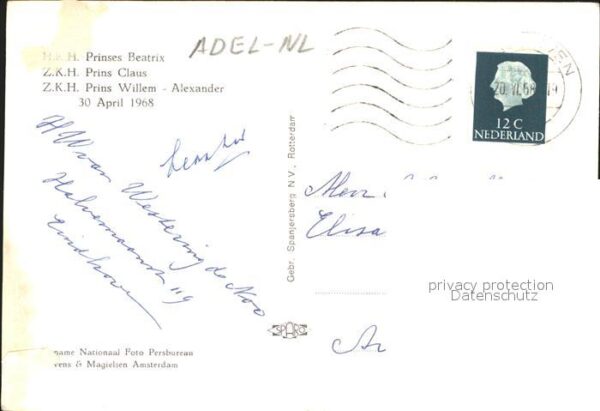 H.K.H. Prinses Beatrix
Z.K.H. Prins Claus
Z.K.H. Prins Willem - Alexander
30 April 1968
ADEL-NL
12 C
NEDERLAND
20. VI. 68
H W van Westering de Noo
Halvemaanstr
Eindhoven
Gebr. Spanjersberg N.V., Rotterdam
Elisa
privacy protection
Datenschutz
SPARO
name Nationaal Foto Persbureau
vens & Magielsen Amsterdam